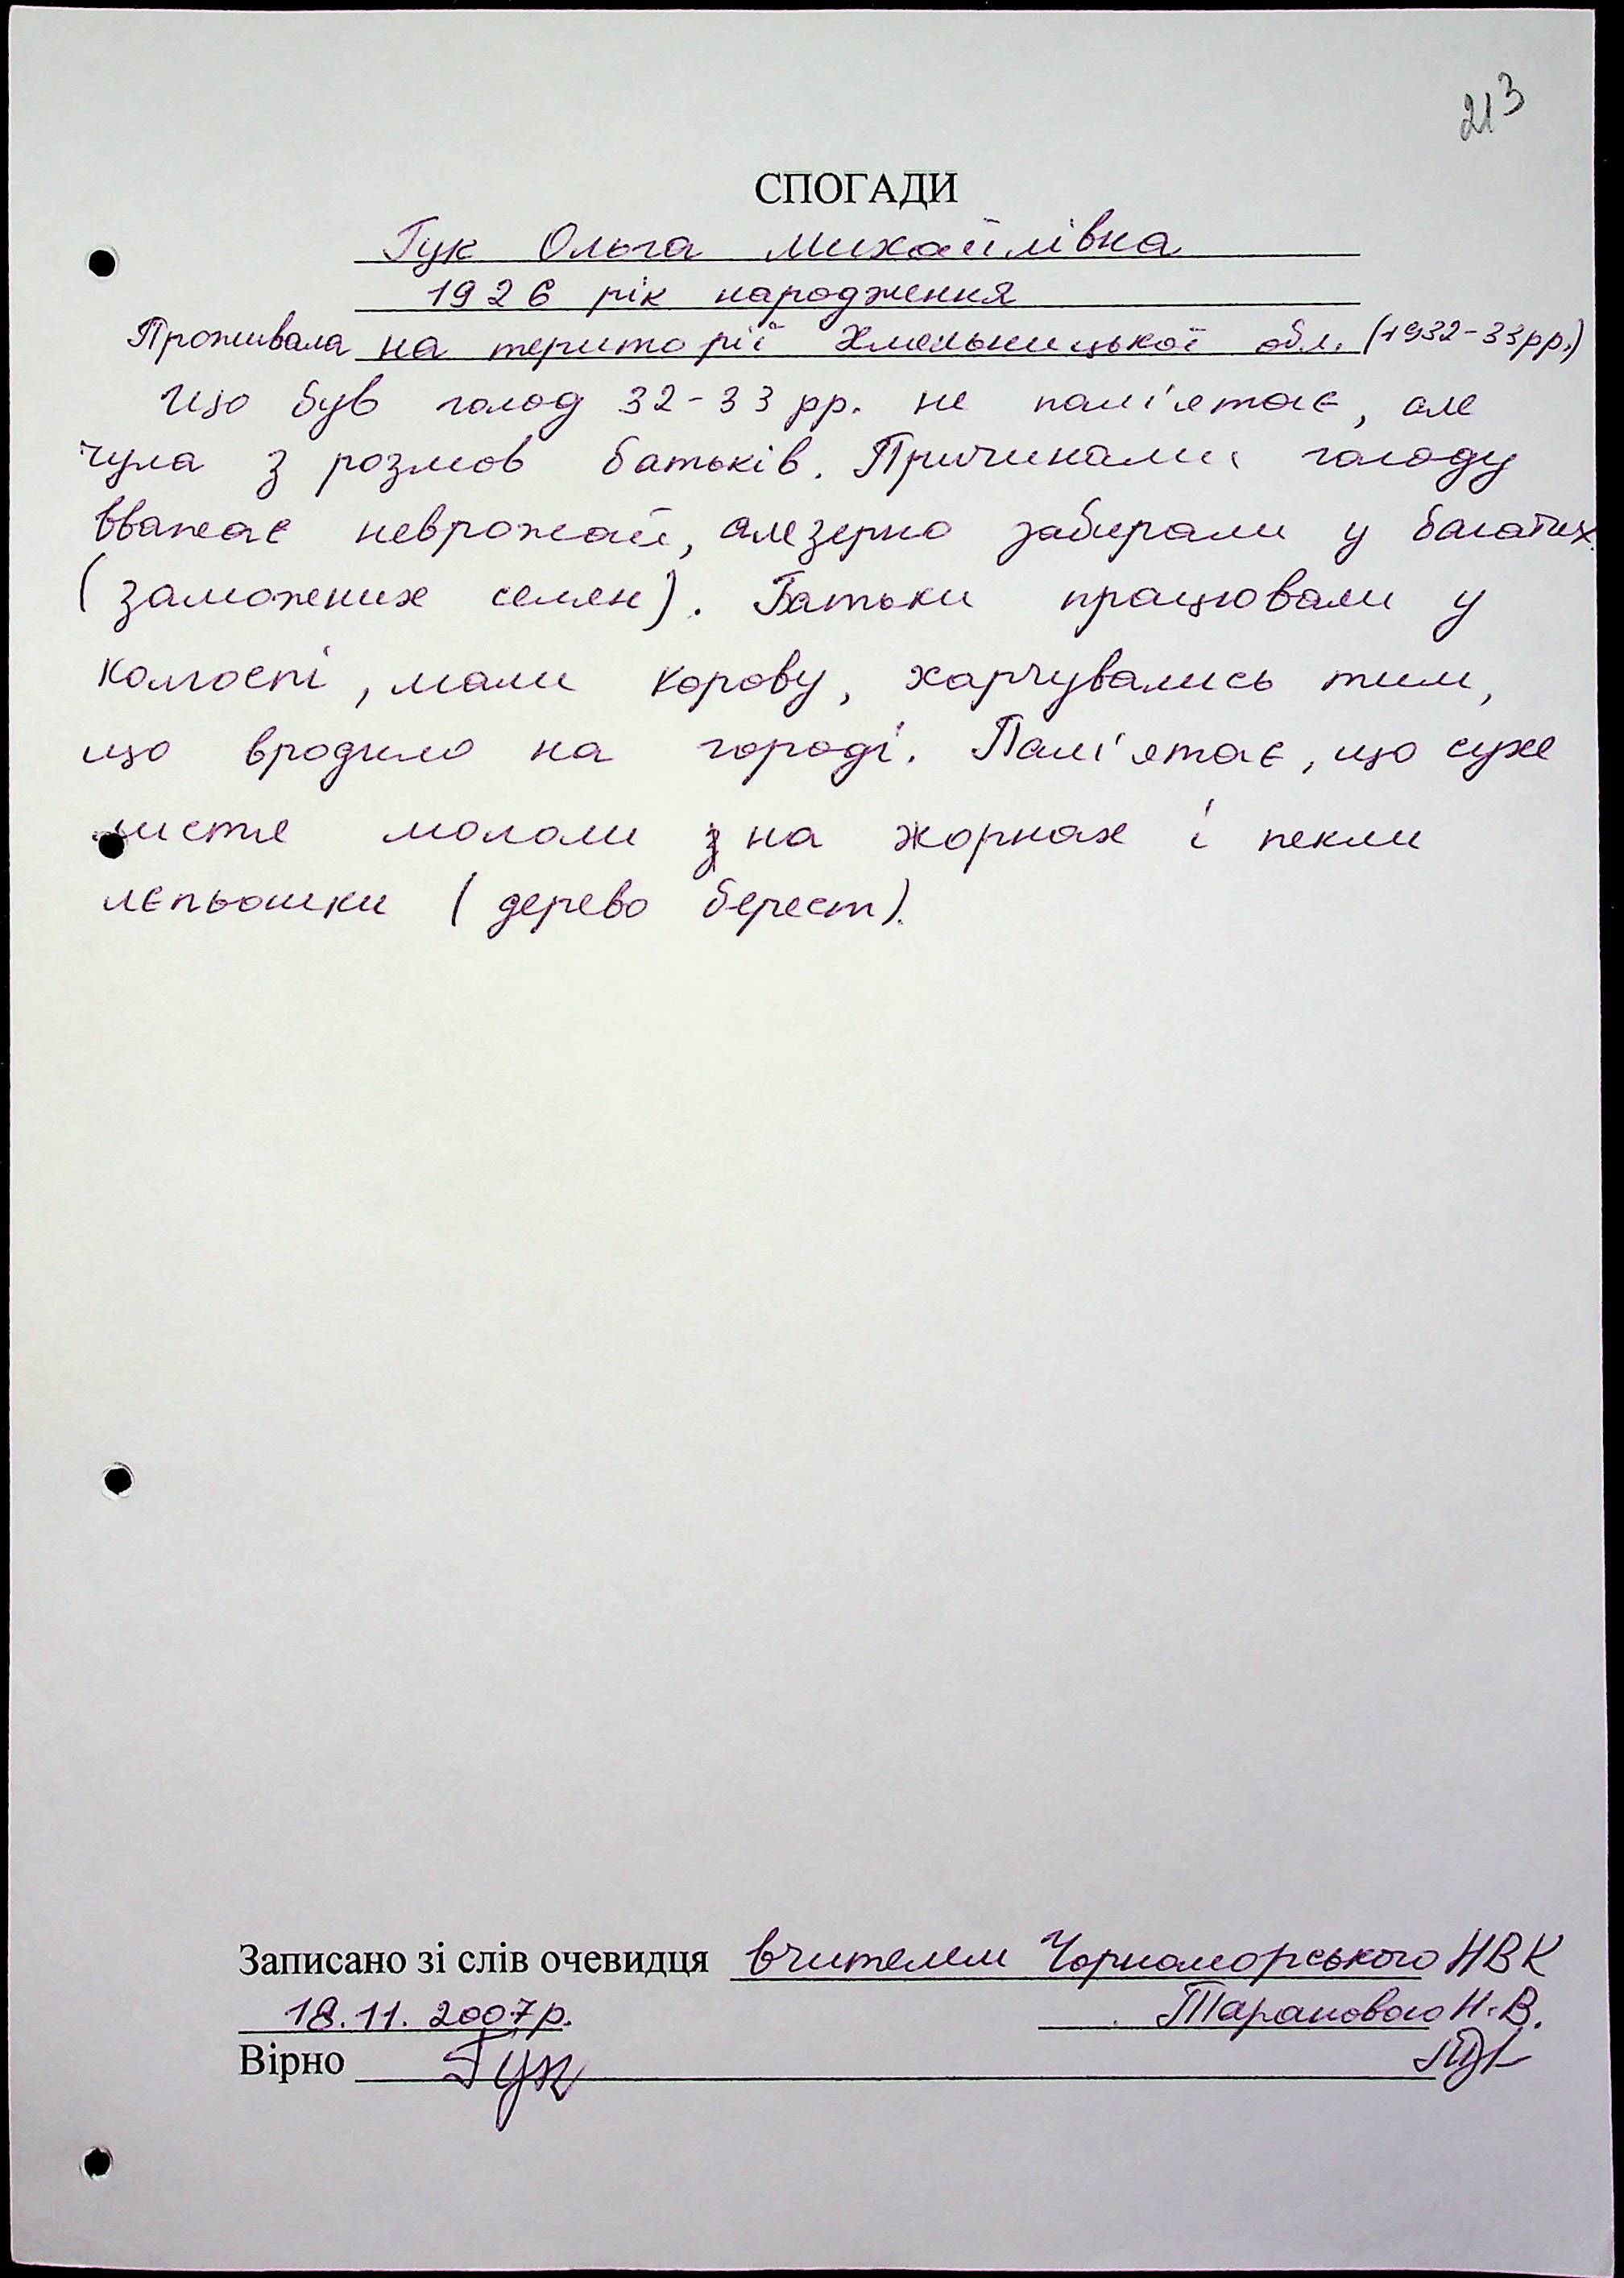 213
СПОГАДИ
Гук Ольга Михайлівна
1926 рік народження
Проживала на території Хмельницької обл. (1932-33рр.)
Що був голод 32-33 рр. не пам'ятає, але
чула з розмов батьків. Причинами голоду
вважає неврожай, але зерно забирали у багатих
(заможених семян). Батьки працювали у
колгоспі, мали корову, харчувались тим,
що вродило на городі. Пам'ятає, що сухе
листя мололи на жорнах і пекли
лєпьошки (дерево берест).
Записано зі слів очевидця вчителем Чорноморського НВК
18.11.2007р. Тарановою Н.В.
Вірно Гук